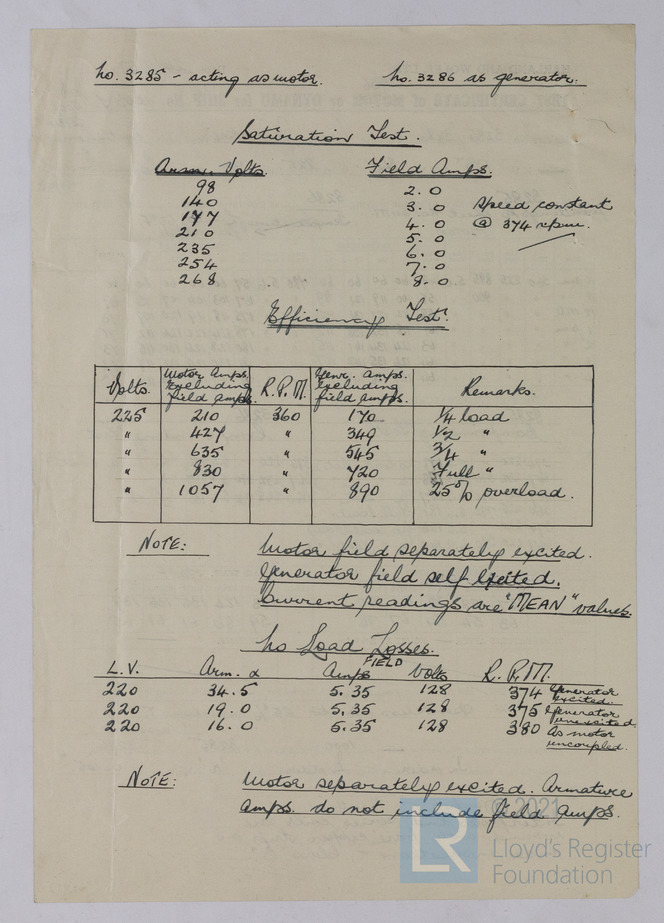 No. 3285 - acting as motor. No. 3286 as generator.
Saturation Test.
Arm. Volts. Field Amps.
98 2.0
140 3.0 Speed constant
177 4.0 @ 374 rpm.
210 5.0
235 6.0
254 7.0
268 8.0
Efficiency Test.
Volts. Motor Amps. Excluding field amps. R.P.M. Genr. Amps. Excluding field amps. Remarks.
225 210 360 170 1/4 load
" 427 " 349 1/2 "
" 635 " 545 3/4 "
" 830 " 720 Full "
" 1057 " 890 25% overload.
NOTE: Motor field separately excited.
Generator field self excited.
Current readings are "MEAN" values.
No Load Losses.
L.V. Arm. a FIELD Amps Volts R.P.M.
220 34.5 5.35 128 374 Generator excited.
220 19.0 5.35 128 375 Generator unexcited.
220 16.0 5.35 128 380 As motor uncoupled.
NOTE: Motor separately excited. Armature
amps. do not include field amps.
2021
LR Lloyd's Register
Foundation